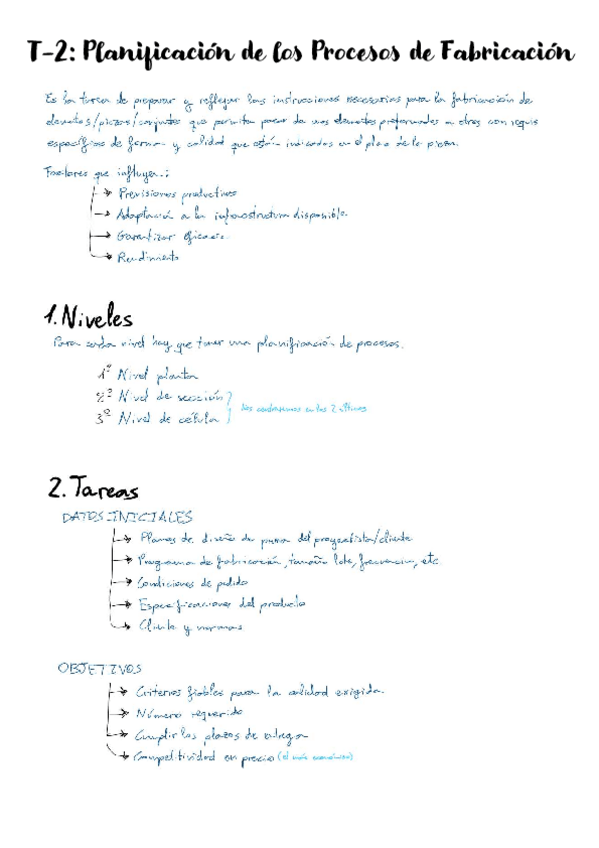 T-2: Planificación de los Procesos de Fabricación
Es la tarea de preparar y reflejar las instrucciones necesarias para la fabricación de
elementos/piezas/conjuntos que permita pasar de unos elementos preformados a otros con requis
específicos de forma y calidad que están indicados en el plano de la pieza.
Factores que influyen:
→ Previsiones productivas
→ Adaptación a la infraestructura disponible.
→ Garantizar eficacia.
→ Rendimiento
1. Niveles
Para cada nivel hay que tener una planificación de procesos.
1º Nivel planta
2º Nivel de sección
3º Nivel de célula
Nos centraremos en los 2 últimos
2. Tareas
DATOS INICIALES
→ Planos de diseño de pieza del proyectista/cliente
→ Programa de fabricación, tamaño lote, frecuencia, etc
→ Condiciones de pedido
→ Especificaciones del producto
→ Cliente y normas
OBJETIVOS
→ Criterios fiables para la calidad exigida.
→ Número requerido
→ Cumplir los plazos de entrega
→ Competitividad en precio (el más económico)